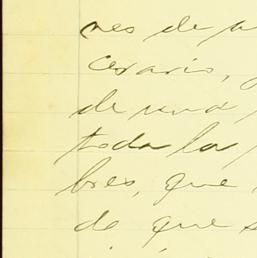 nes de a
cesario,
de una
toda la
bres, que
de que s